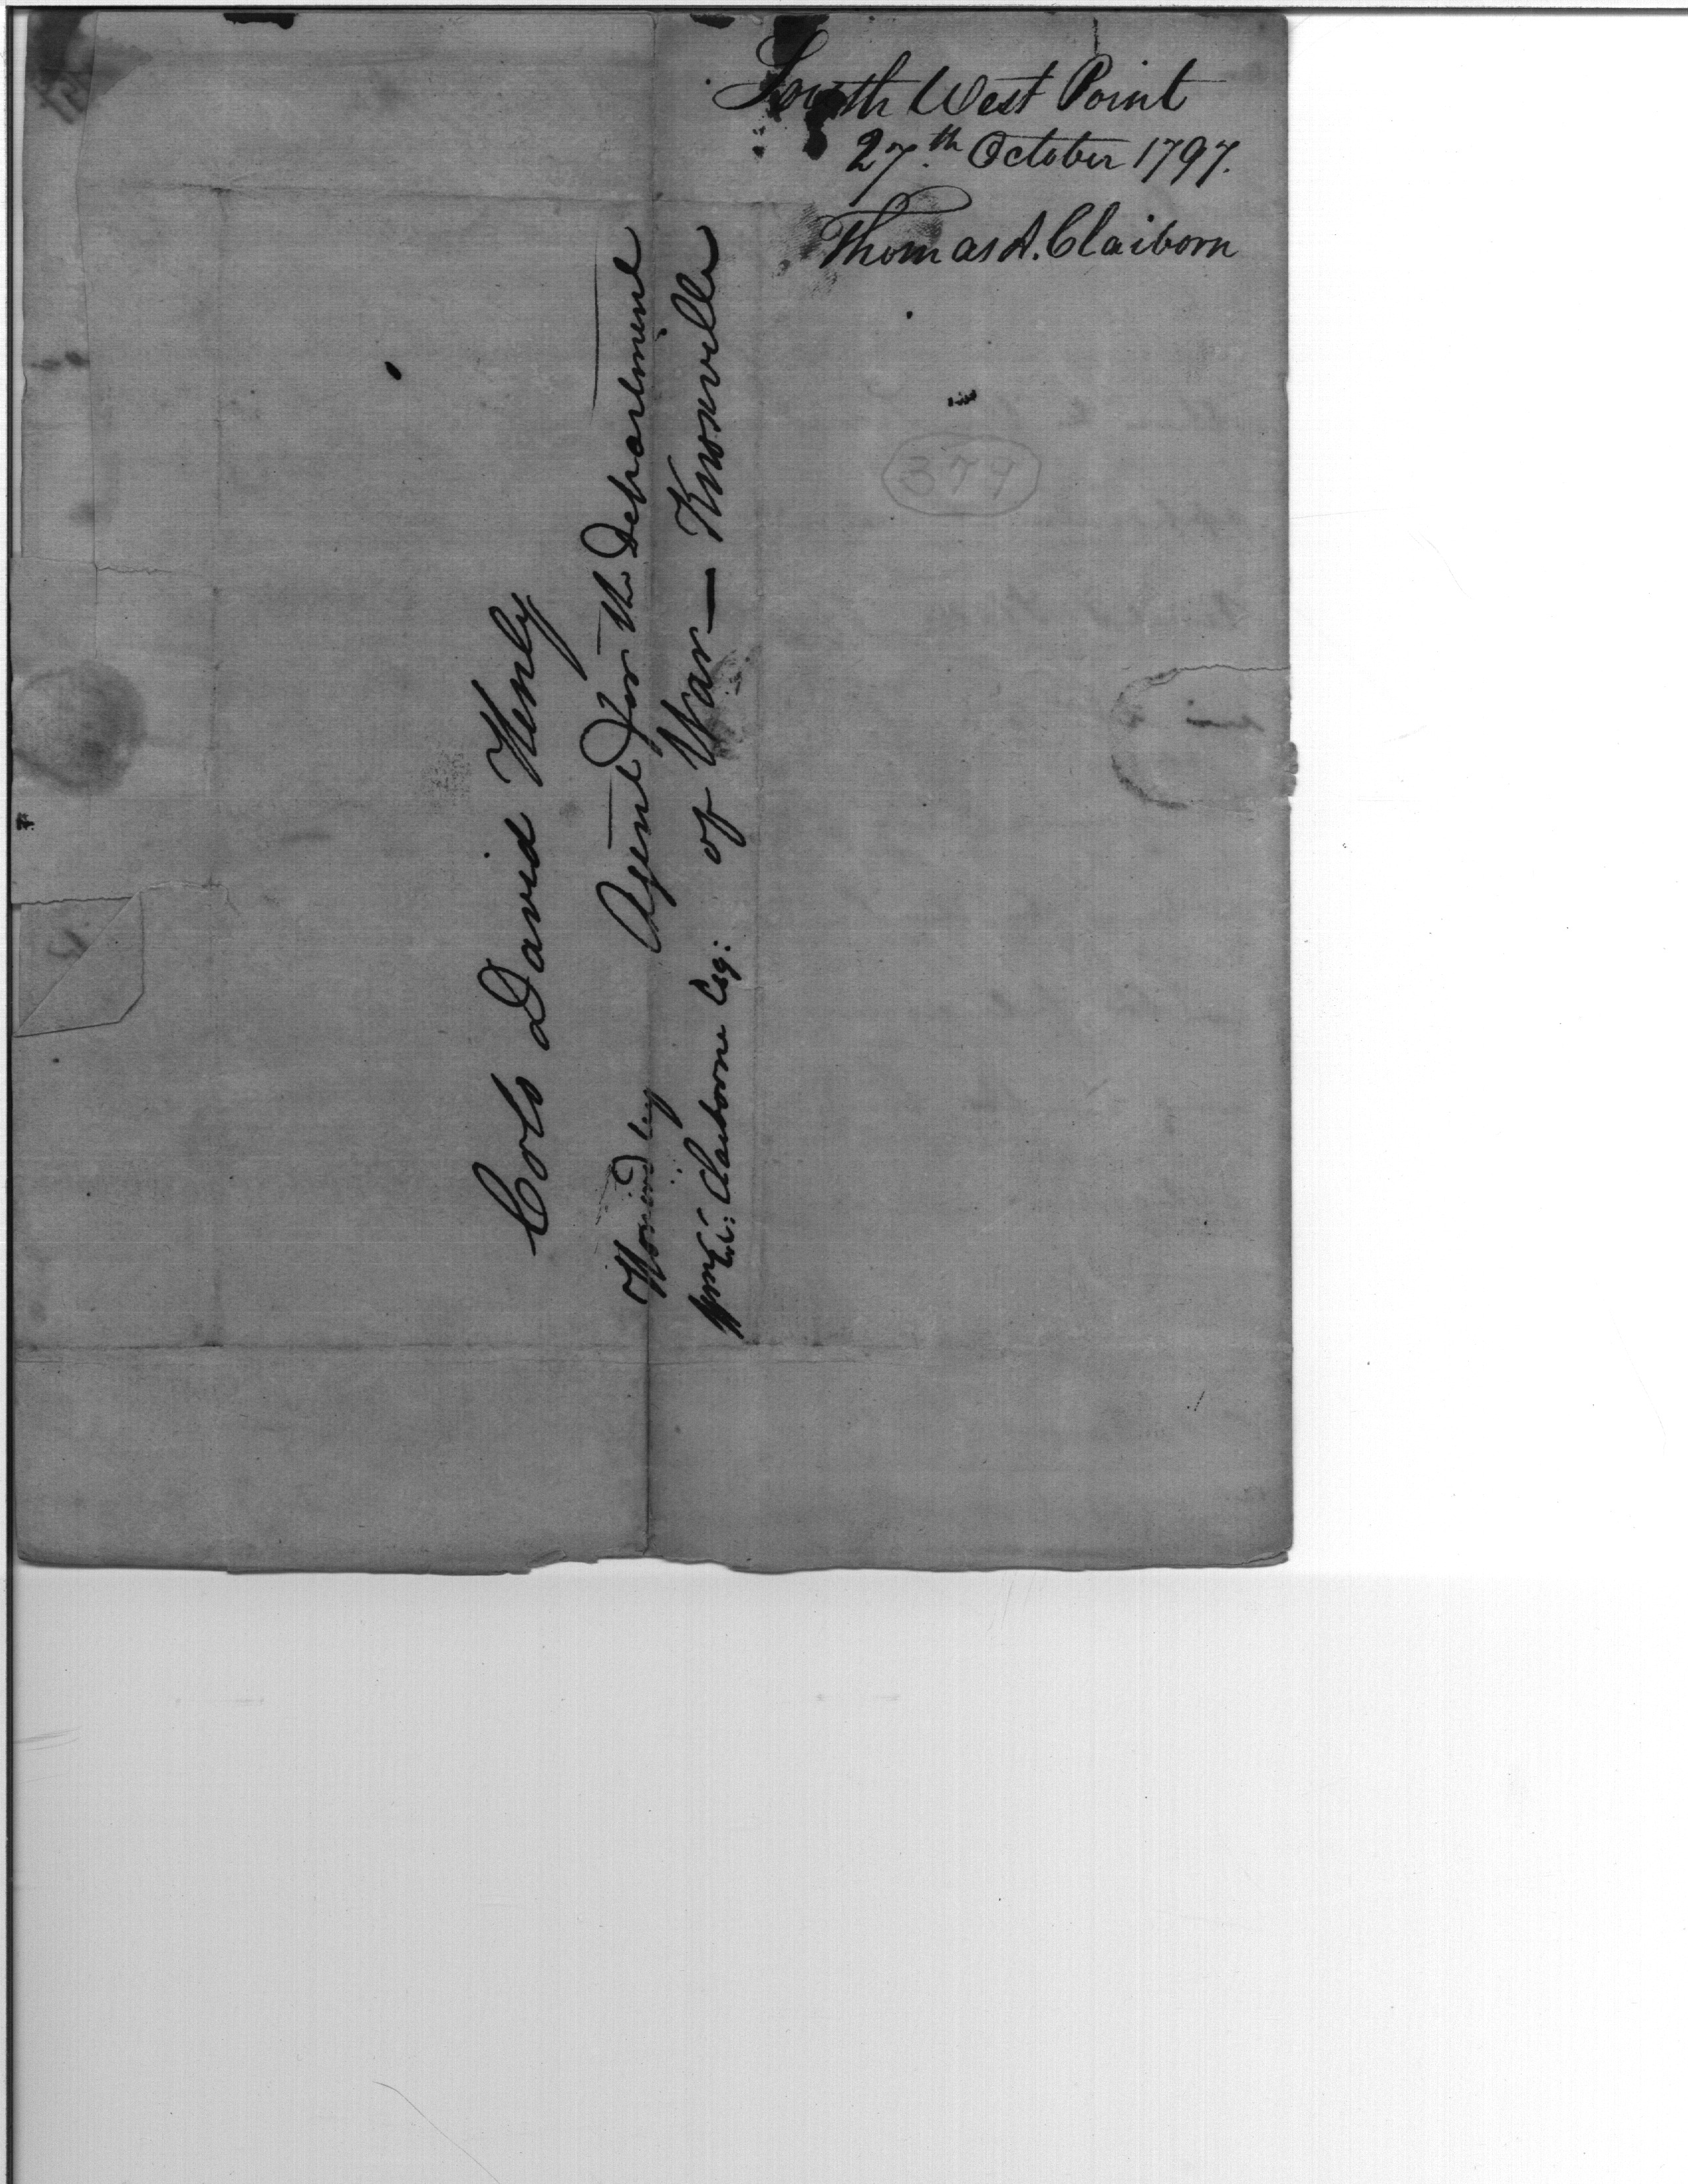 South West Point
27th October 1797.
Thomas A. Claiborn
379
Colo David Henly
Agent for the Department
of War — Knoxville
Honored by
Wm. C. C. Claiborne Esq: